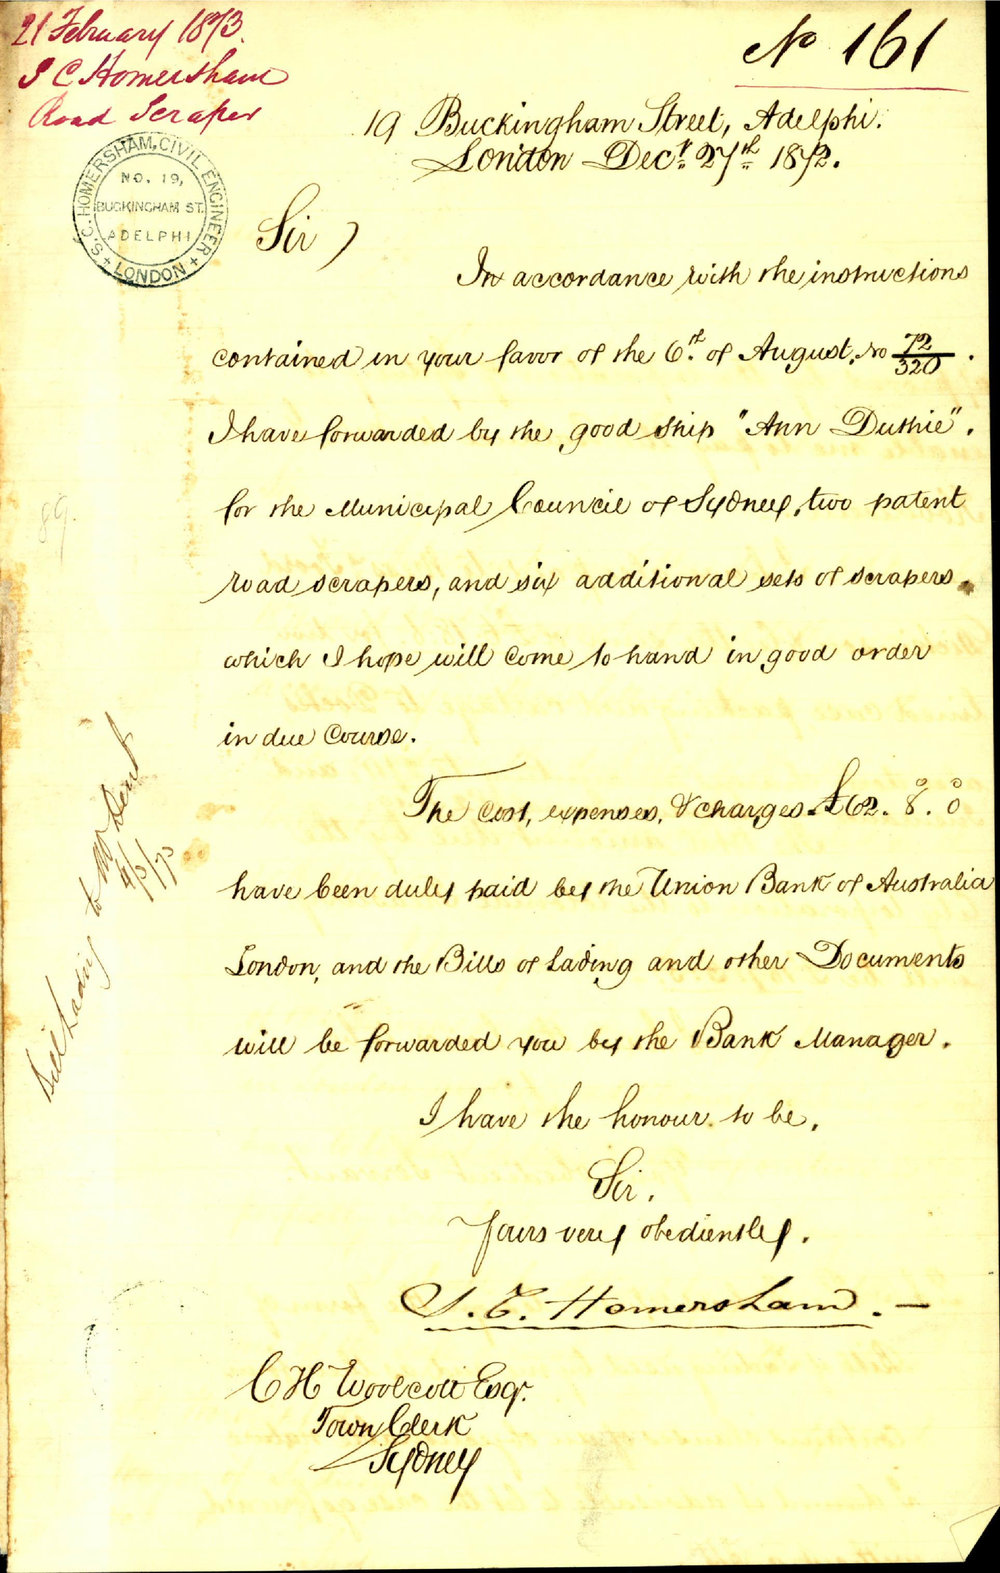 21 February 1873.
S C Homersham
Road Scraper
No 161
19 Buckingham Street, Adelphi.
London Decr. 27th 1872.
S. C. HOMERSHAM, CIVIL ENGINEER + LONDON +
NO. 19,
BUCKINGHAM ST.
ADELPHI
Sir,
In accordance with the instructions
contained in your favor of the 6th of August, No 72/320.
I have forwarded by the good ship "Ann Duthie".
for the Municipal Council of Sydney, two patent
road scrapers, and six additional sets of scrapers,
which I hope will come to hand in good order
in due course.
The cost, expenses, & charges £62. 8. 0
have been duly paid by the Union Bank of Australia
London, and the Bills of Lading and other Documents
will be forwarded you by the Bank Manager.
I have the honour to be,
Sir,
Yours very obediently,
S. C. Homersham. —
C H Woolcott Esqr.
Town Clerk
Sydney
89.
Bill Lading to Mr Dent
4/3/73